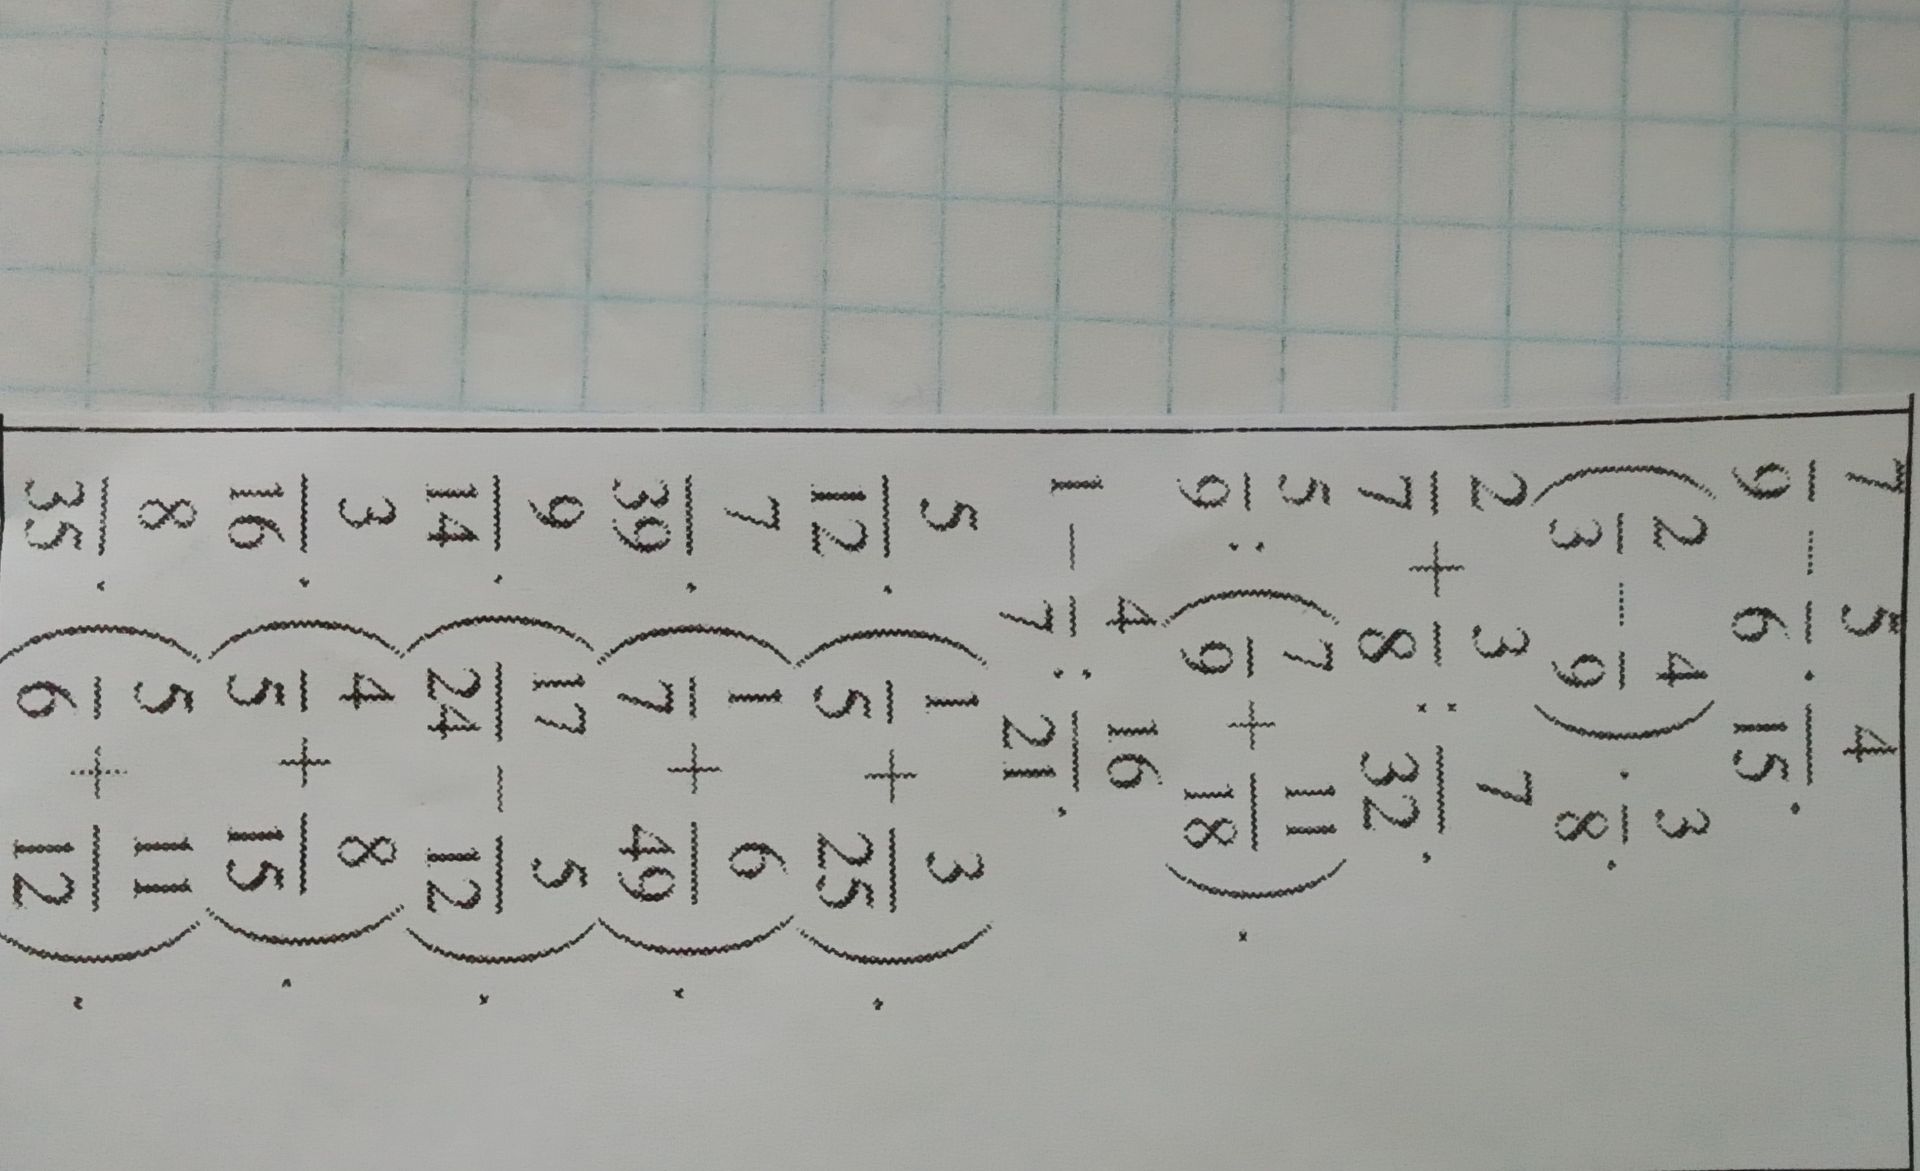 7/9 − 5/6 · 4/15.
(2/3 − 4/9) · 3/8.
2/7 + 3/8 : 7/32.
5/9 : (7/9 + 11/18).
1 − 4/7 : 16/21.
5/12 · (1/5 + 3/25).
7/39 · (1/7 + 6/49).
9/14 · (17/24 − 5/12).
3/16 · (4/5 + 8/15).
8/35 · (5/6 + 11/12).